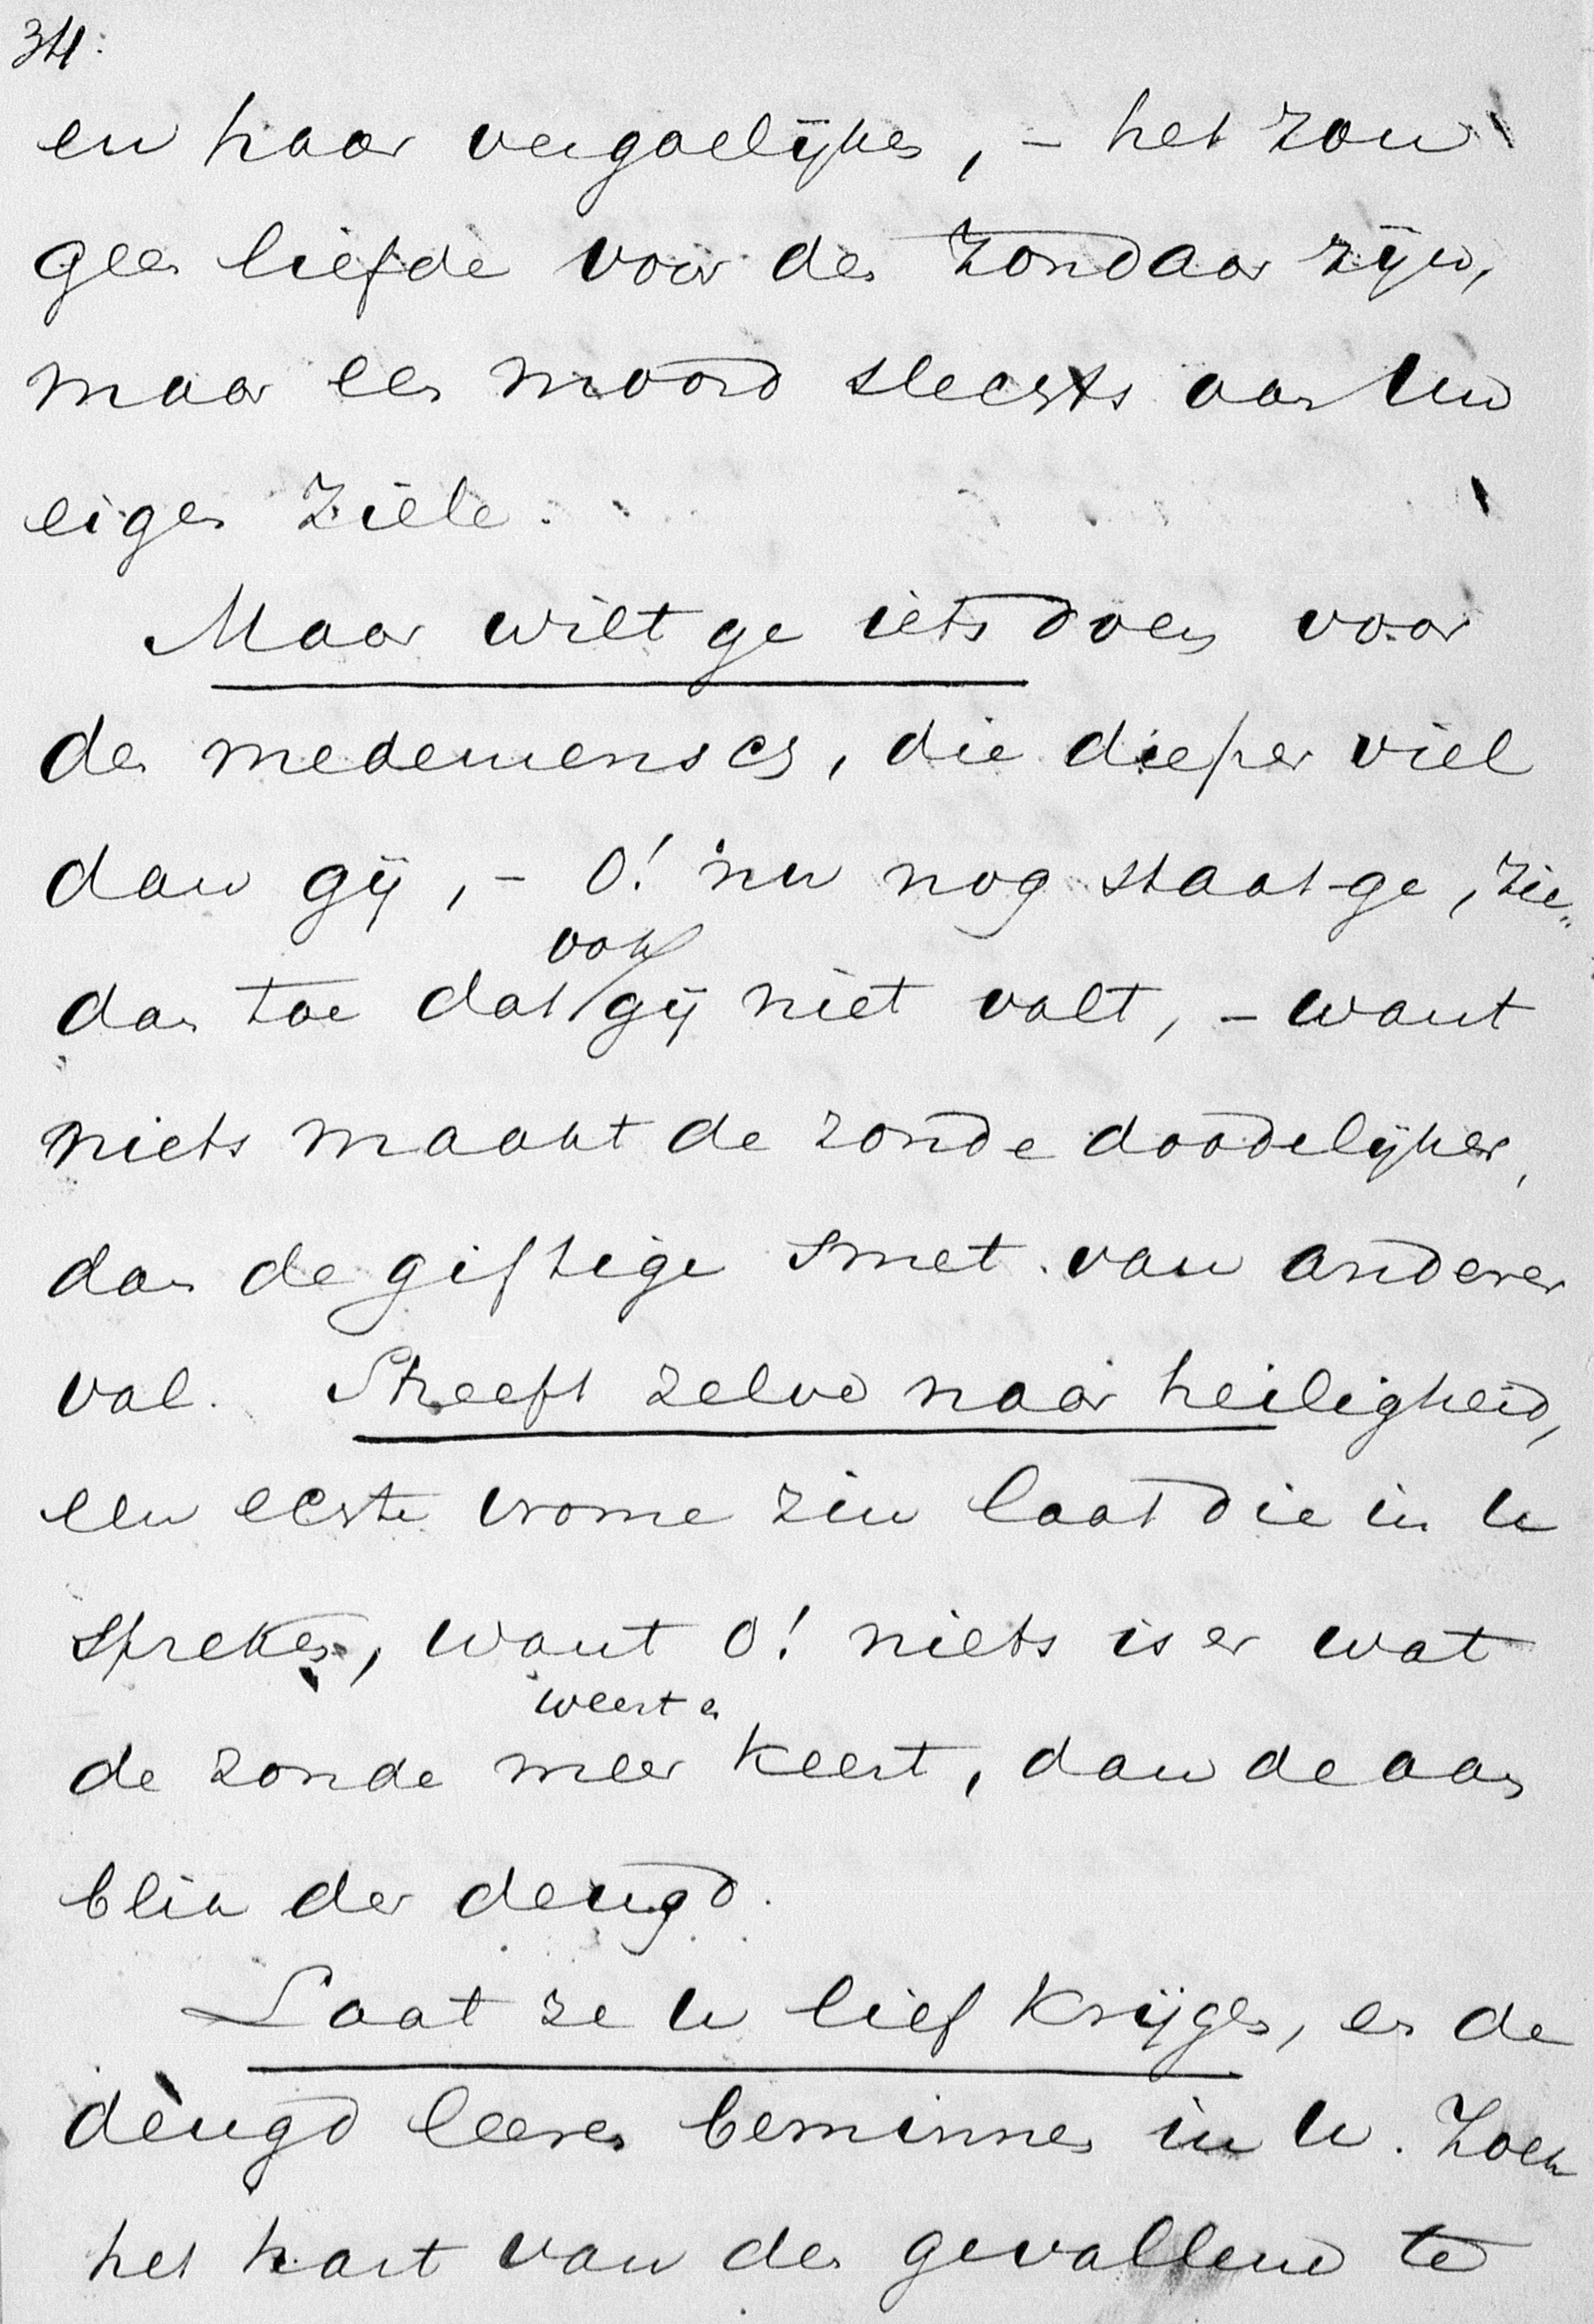 34:
en haar vergoelijken, – het zou
geen liefde voor den zondaar zijn,
maar een moord slechts aan uw
eigen ziele.
Maar wilt ge iets doen voor
den medemensch, die dieper viel
dan gij, – O! nu nog staat ge, zie
ook
dan toe dat gij niet valt, – want
niets maakt de zonde doodelijker,
dan de giftige smet van anderer
val. Streeft zelve naar heiligheid,
een echte vrome zin laat die in u
spreken, want o! niets is er wat
weert en
de zonde meer keert, dan de aan
blik der deugd.
Laat ze u lief krijgen, en de
deugd leeren beminnen in u. Zoek
het hart van den gevallene te